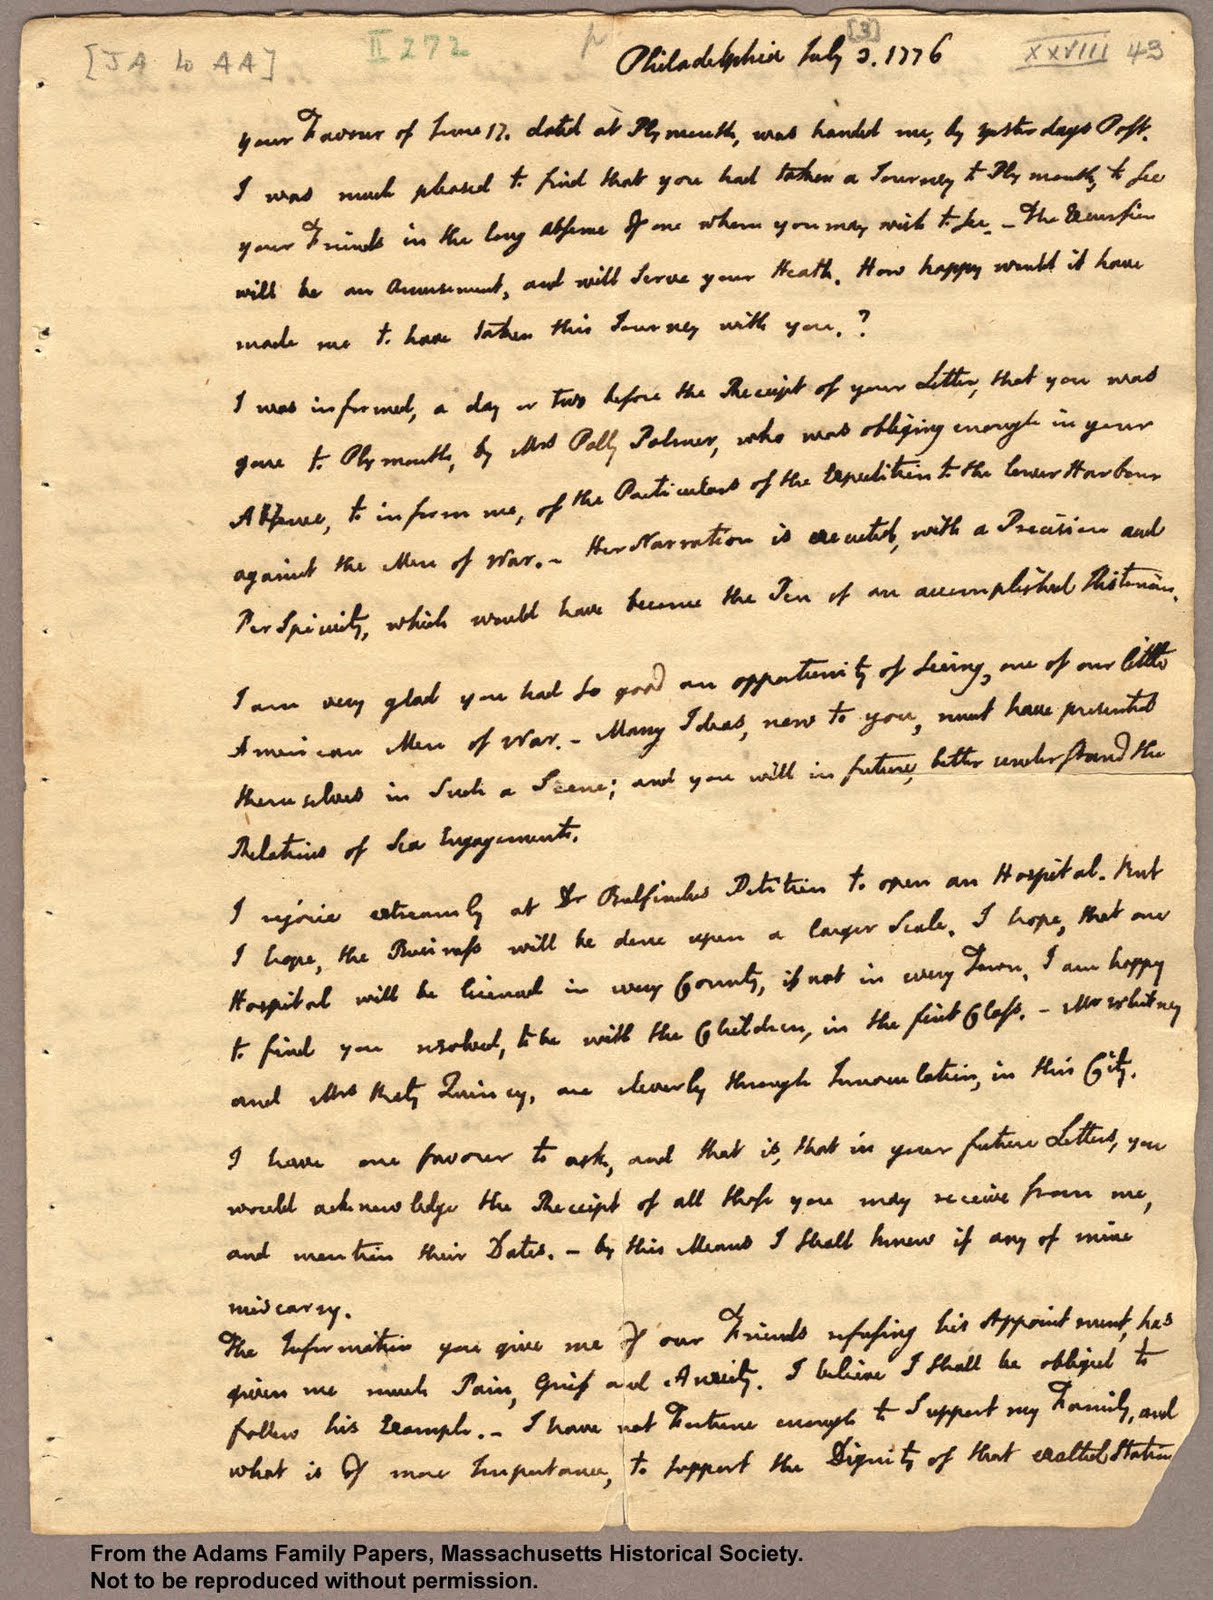 [JA to AA]
II 272
[3]
XXVIII 43
Philadelphia July 3. 1776
your Favour of June 17. dated at Plymouth, was handed me, by yesterdays Post.
I was much pleased to find that you had taken a Journey to Plymouth, to see
your Friends in the long Absence of one whom you may wish to see. – The Excursion
will be an Amusement, and will serve your Heath. How happy would it have
made me to have taken this Journey with you. ?
I was informed, a day or two before the Receipt of your Letter, that you was
gone to Plymouth, by Mrs Polly Palmer, who was obliging enough in your
Absence, to inform me, of the Particulars of the Expedition to the lower Harbour
against the Men of War. – Her Narration is executed, with a Precision and
Perspicuity, which would have become the Pen of an accomplished Historian.
I am very glad you had so good an opportunity of seeing, one of our little
American Men of War. – Many Ideas, new to you, must have presented
themselves in Such a Scene; and you will in future, better understand the
Relations of Sea Engagements.
I rejoice extreamly at Dr Bulfinches Petition to open an Hospital. But
I hope, the Business will be done upon a larger Scale. I hope, that one
Hospital will be licensed in every County, if not in every Town. I am happy
to find you resolved, to be with the Children, in the first Class. – Mr Whitney
and Mrs Katy Quincy, are cleverly through Innoculation, in this City.
I have one favour to ask, and that is, that in your future Letters, you
would acknowledge the Receipt of all those you may receive from me,
and mention their Dates. – by this Means I shall know if any of mine
miscarry.
The Information you give me of our Friends refusing his Appointment, has
given me much Pain, Grief and Anxiety. I believe I shall be obliged to
follow his Example. – I have not Fortune enough to Support my Family, and
what is of more Importance, to support the Dignity of that exalted Station
From the Adams Family Papers, Massachusetts Historical Society.
Not to be reproduced without permission.